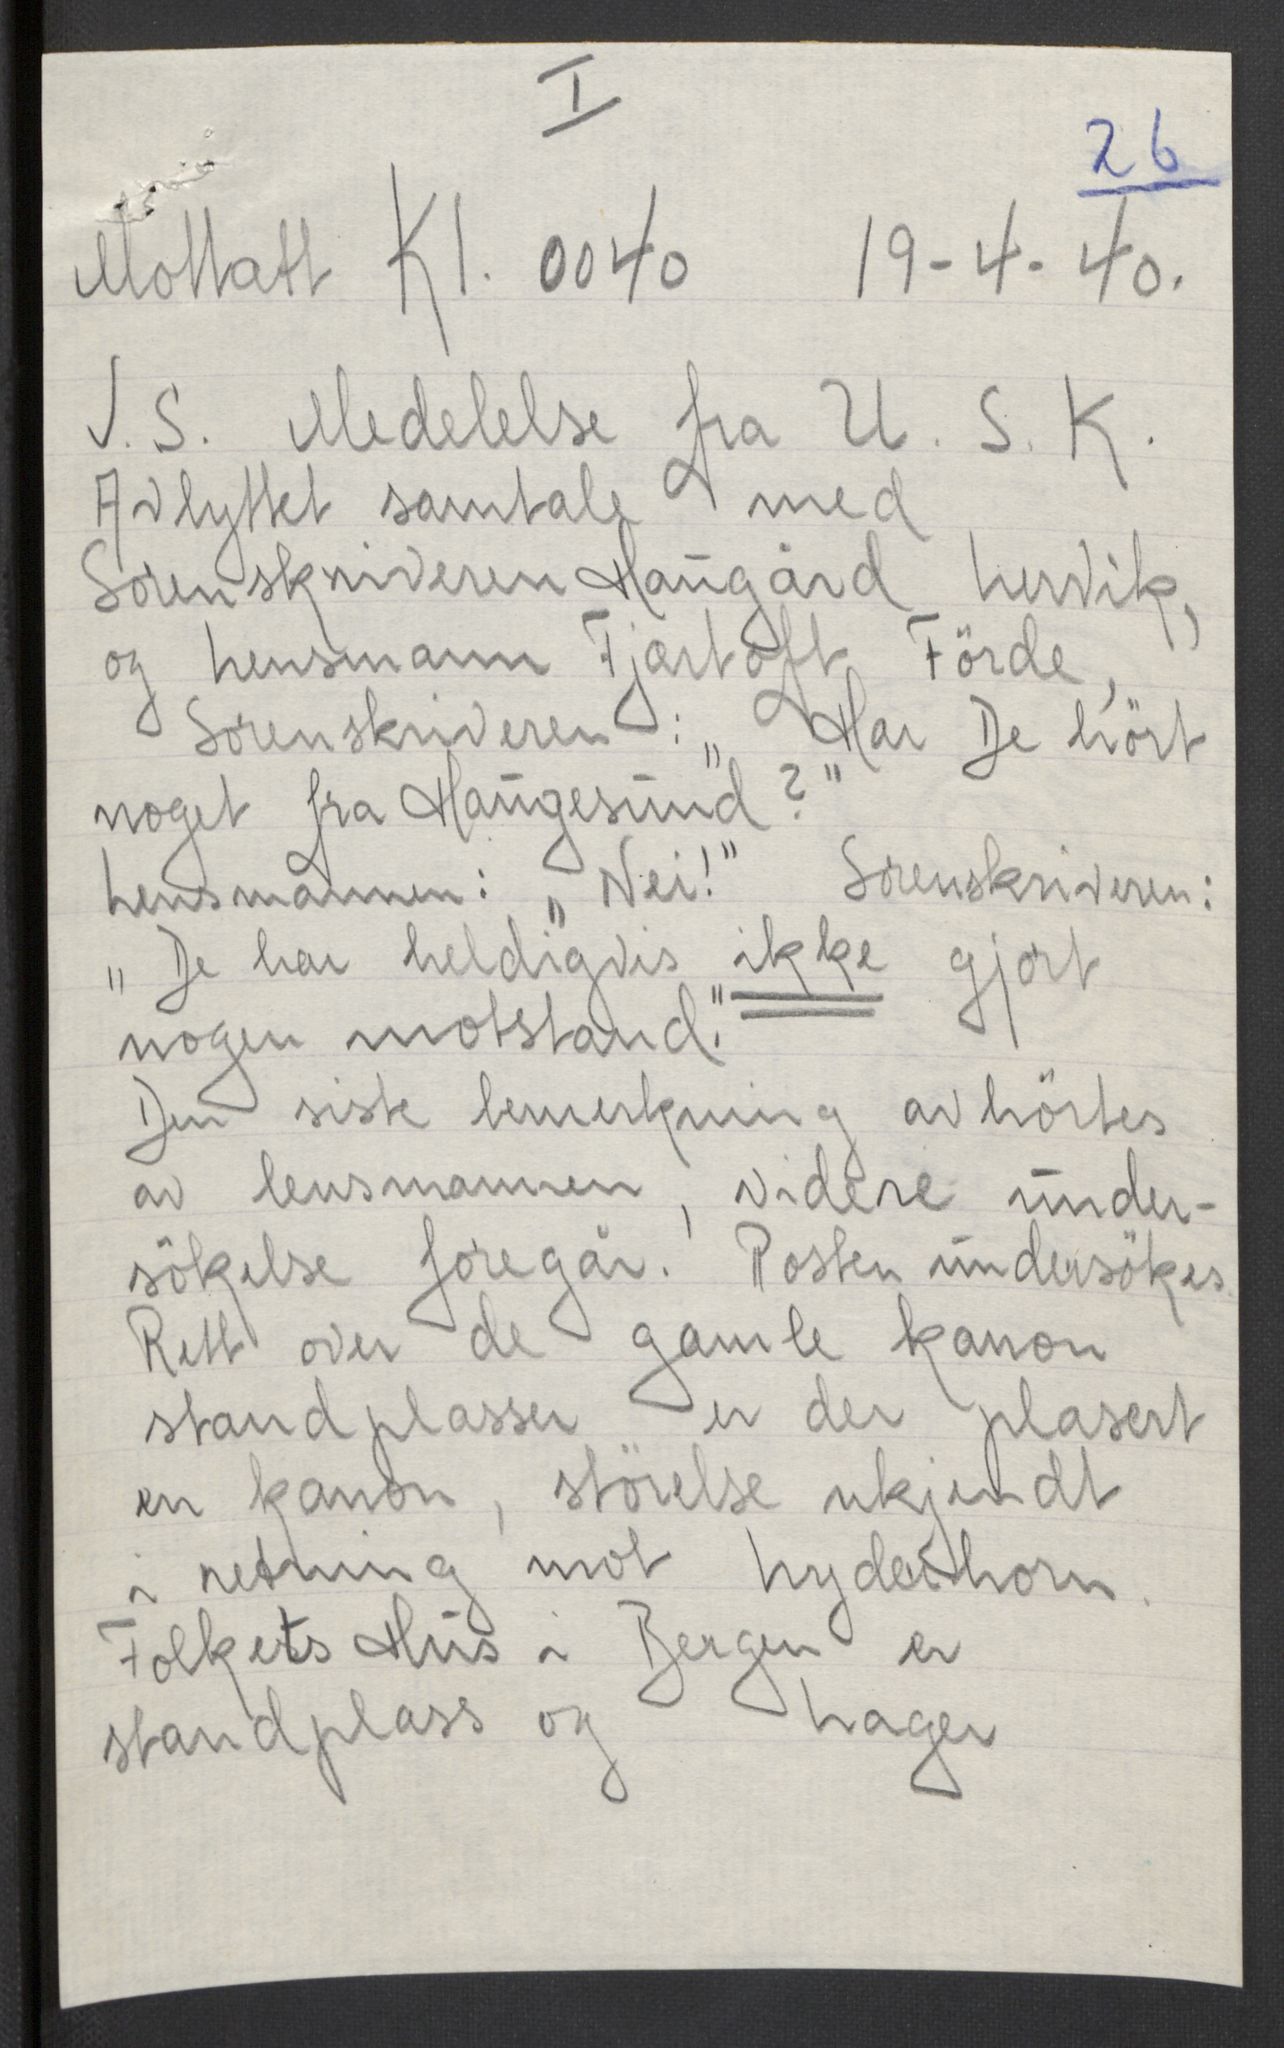 I
26
Mottatt Kl. 0040 19-4-40.
J.S. Medelelse fra U.S.K.
Avlyttet samtale med
Sörenskriveren Haugård Lervik,
og lensmann Fjærtoft Förde,
Sörenskriveren: „Har De hört
noget fra Haugesund?"
Lensmannen: „Nei!" Sörenskriveren:
„De har heldigvis ikke gjort
nogen motstand."
Den siste bemerkning avhörtes
av lensmannen, videre under-
sökelse foregår. Posten undersökes.
Rett over de gamle kanon
standplasser er der plasert
en kanon, störelse ukjendt
i retning mot Lyderhorn.
Folkets Hus i Bergen er
standplass og Lager